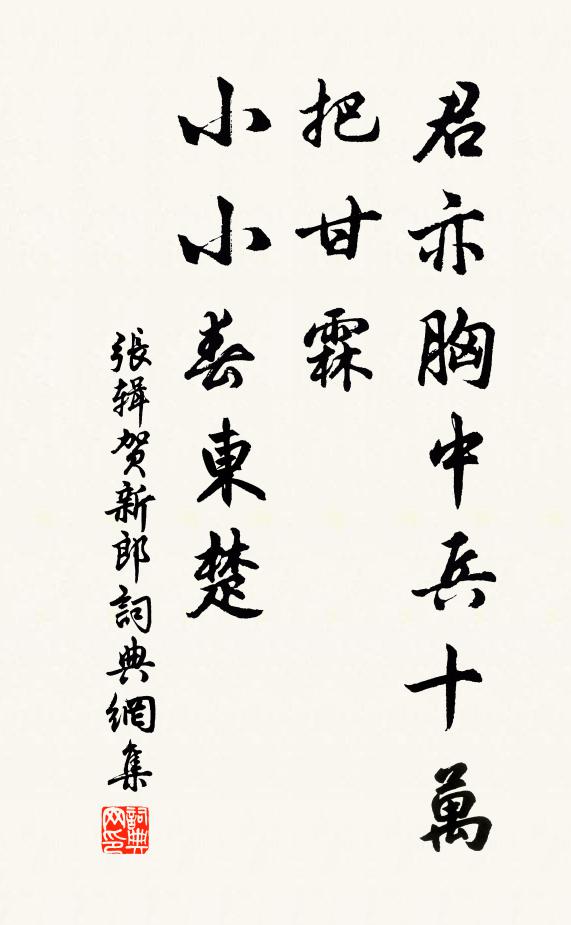 君亦胸中兵十萬
把甘霖
小小春東楚
張輯賀新郎詞典網集
詞典网印